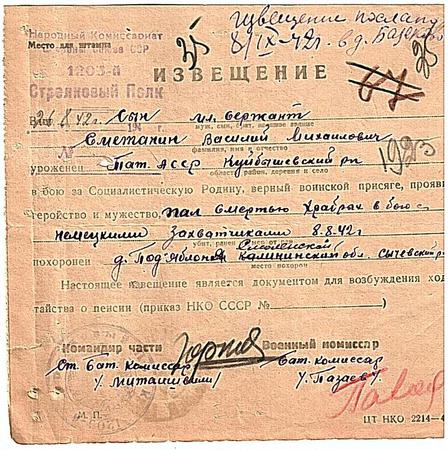 Извещение послано
8/IX-42г. в д. Базяково
35
Народный Комиссариат
Обороны Союза ССР
Место для штампа
1203-й
Стрелковый Полк
ИЗВЕЩЕНИЕ
26.8.42г.
№
Ваш Сын мл. сержант
муж, сын, брат, воинское звание
Сметанин Василий Михайлович
фамилия, имя и отчество
1923
уроженец Тат. АССР Куйбышевский р-н
область, район, деревня и село
в бою за Социалистическую Родину, верный воинской присяге, прояв
геройство и мужество, пал смертью храбрых в бою с
немецкими захватчиками 8.8.42г
убит, ранен
Смоленской
похоронен д. Под-Яблоня Калининской обл. Сычевский р-
место похорон
Настоящее извещение является документом для возбуждения хода
тайства о пенсии (приказ НКО СССР №
Командир части
Военный комиссар
Ст. Бат. Комиссар
бат. комиссар
М. П.
ЦТ НКО 2214—4